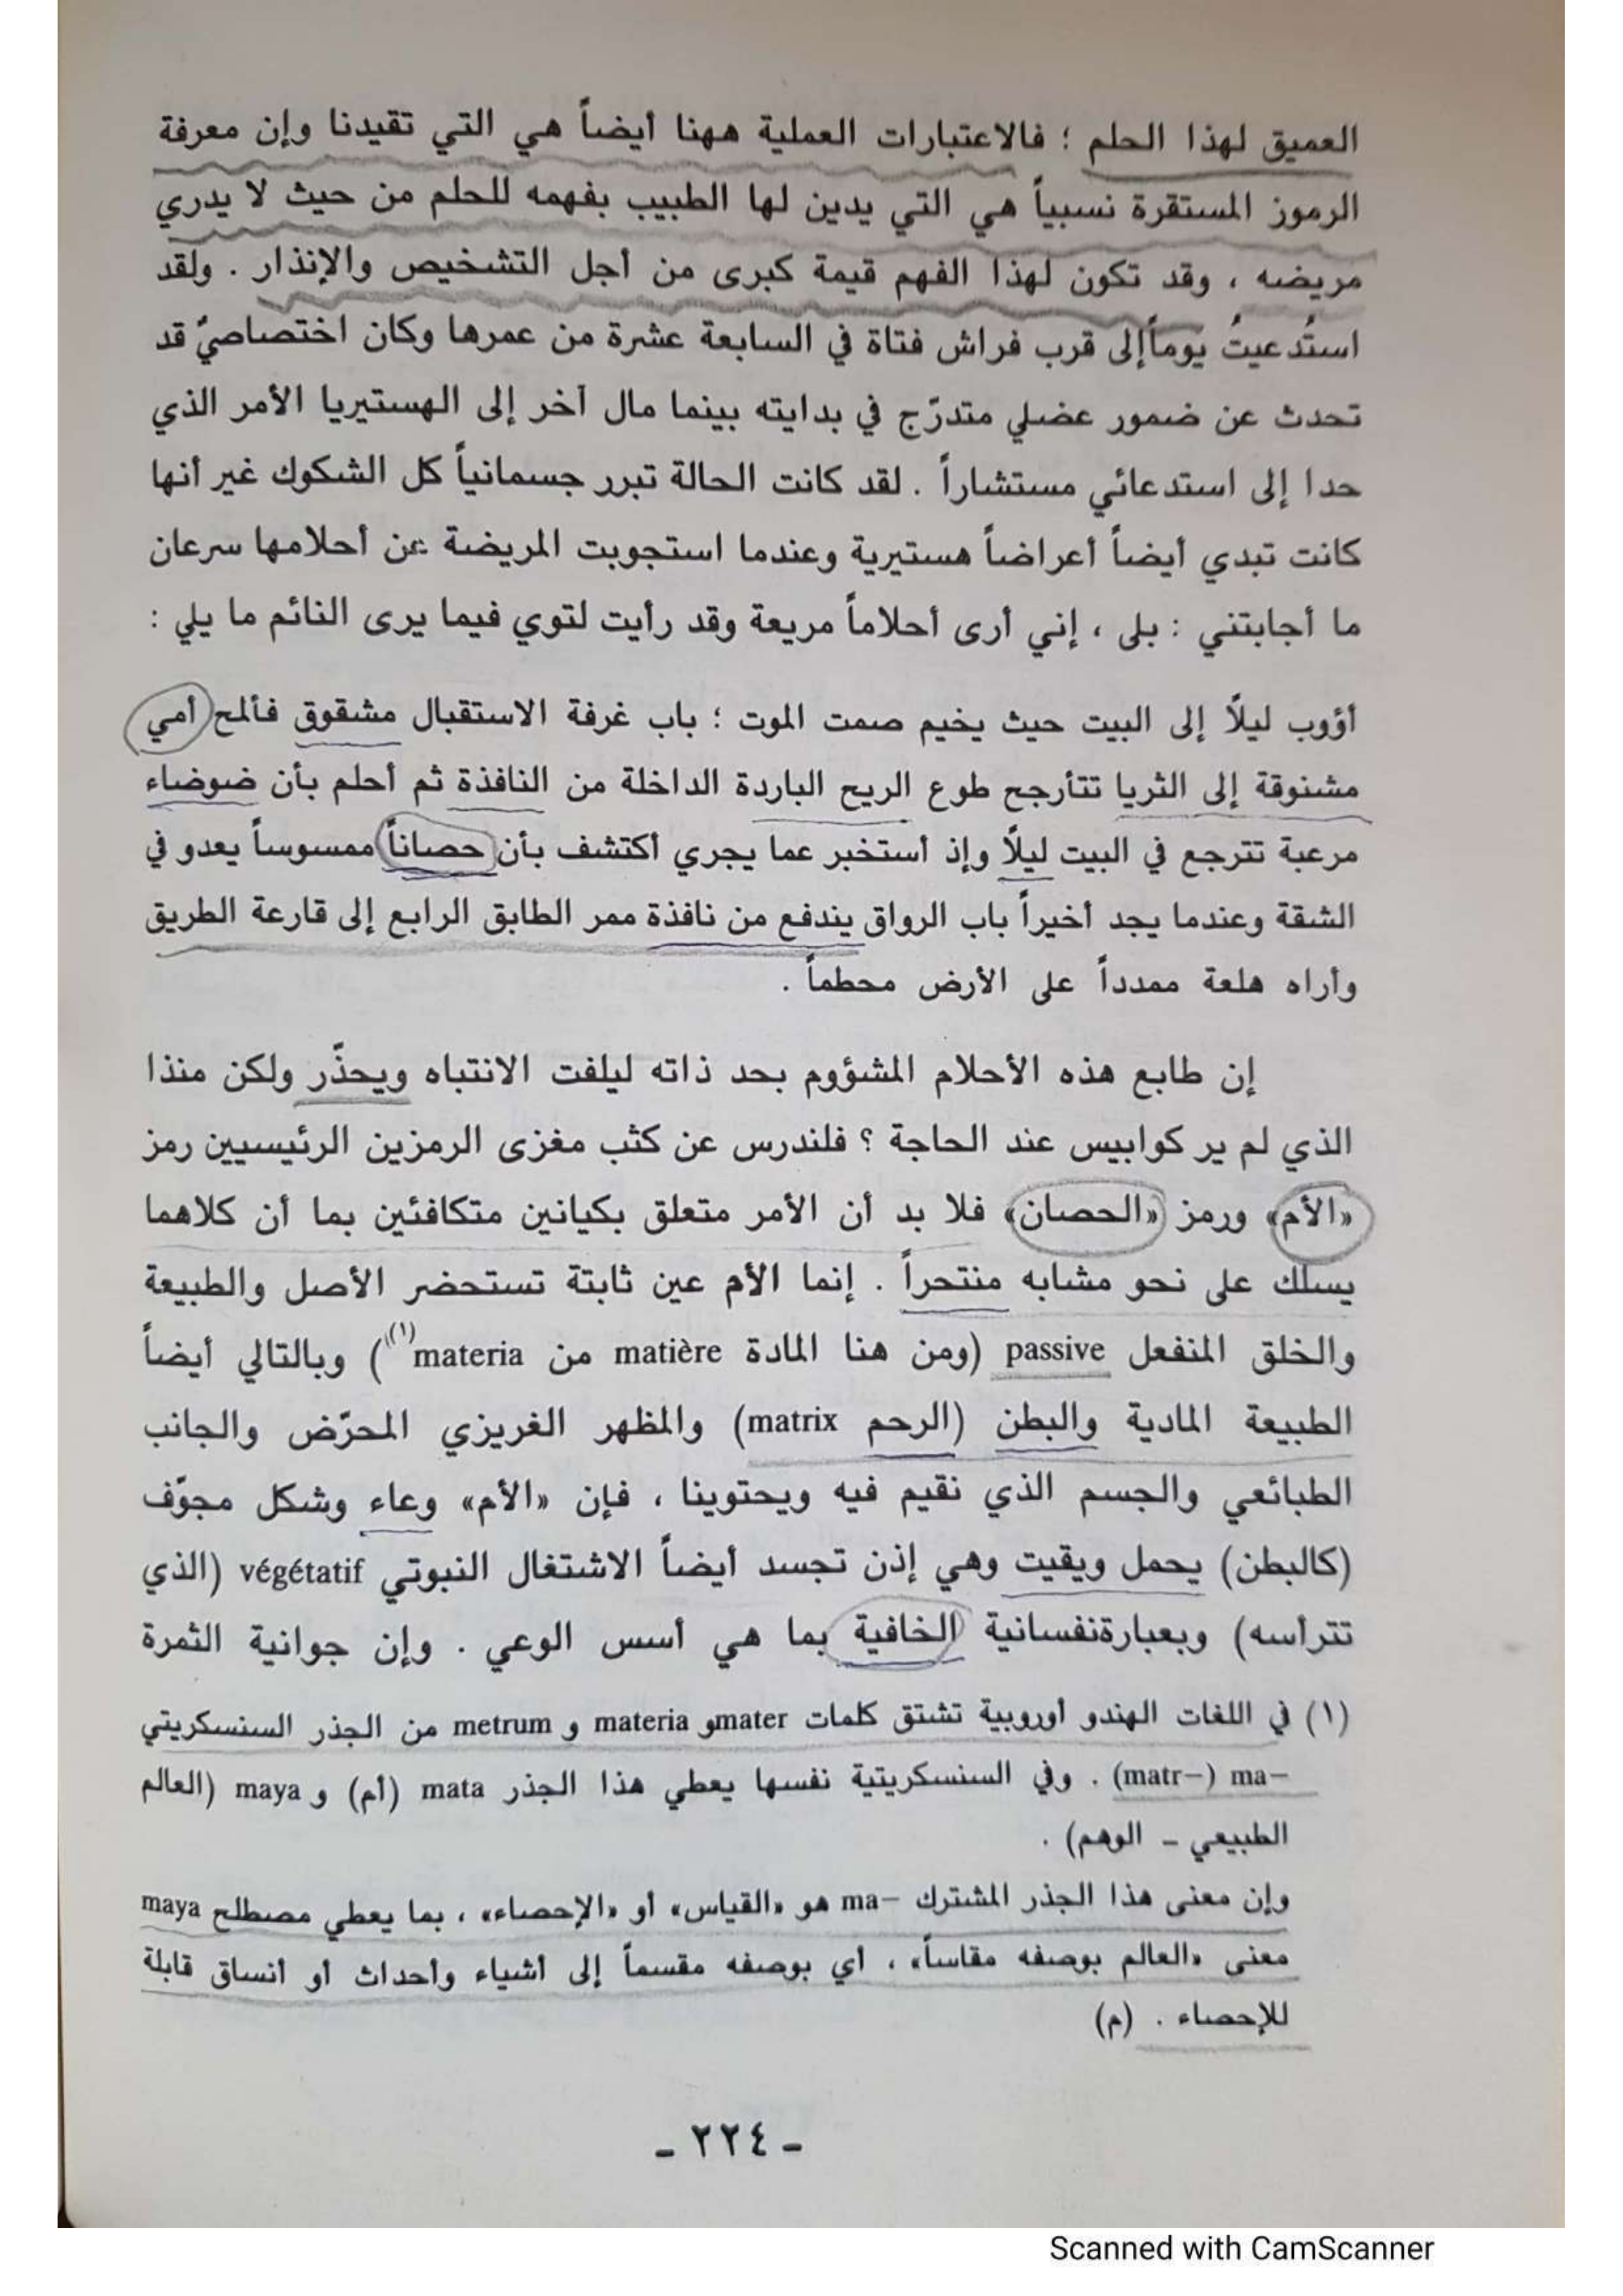 العميق لهذا الحلم ؛ فالاعتبارات العملية ههنا أيضاً هي التي تقيدنا وإن معرفة
الرموز المستقرة نسبياً هي التي يدين لها الطبيب بفهمه للحلم من حيث لا يدري
مريضه ، وقد تكون لهذا الفهم قيمة كبرى من أجل التشخيص والإنذار . ولقد
استُدعيتُ يوماً إلى قرب فراش فتاة في السابعة عشرة من عمرها وكان اختصاصيّ قد
تحدث عن ضمور عضلي متدرّج في بدايته بينما مال آخر إلى الهستيريا الأمر الذي
حدا إلى استدعائي مستشاراً . لقد كانت الحالة تبرر جسمانياً كل الشكوك غير أنها
كانت تبدي أيضاً أعراضاً هستيرية وعندما استجوبت المريضة عن أحلامها سرعان
ما أجابتني : بلى ، إني أرى أحلاماً مريعة وقد رأيت لتوي فيما يرى النائم ما يلي :
أؤوب ليلًا إلى البيت حيث يخيم صمت الموت ؛ باب غرفة الاستقبال مشقوق فألمح أمي
مشنوقة إلى الثريا تتأرجح طوع الريح الباردة الداخلة من النافذة ثم أحلم بأن ضوضاء
مرعبة تترجع في البيت ليلًا وإذ أستخبر عما يجري أكتشف بأن حصاناً ممسوساً يعدو في
الشقة وعندما يجد أخيراً باب الرواق يندفع من نافذة ممر الطابق الرابع إلى قارعة الطريق
وأراه هلعة ممدداً على الأرض محطماً .
إن طابع هذه الأحلام المشؤوم بحد ذاته ليلفت الانتباه ويحذّر ولكن منذا
الذي لم ير كوابيس عند الحاجة ؟ فلندرس عن كثب مغزى الرمزين الرئيسيين رمز
«الأم» ورمز «الحصان» فلا بد أن الأمر متعلق بكيانين متكافئين بما أن كلاهما
يسلك على نحو مشابه منتحراً . إنما الأم عين ثابتة تستحضر الأصل والطبيعة
والخلق المنفعل passive (ومن هنا المادة matière من materia(١)) وبالتالي أيضاً
الطبيعة المادية والبطن (الرحم matrix) والمظهر الغريزي المحرّض والجانب
الطبائعي والجسم الذي نقيم فيه ويحتوينا ، فإن «الأم» وعاء وشكل مجوّف
(كالبطن) يحمل ويقيت وهي إذن تجسد أيضاً الاشتغال النبوتي végétatif (الذي
تترأسه) وبعبارةنفسانية الخافية بما هي أسس الوعي . وإن جوانية الثمرة
(١) في اللغات الهندو أوروبية تشتق كلمات mater و materia و metrum من الجذر السنسكريتي
ma– (matr–) . وفي السنسكريتية نفسها يعطي هذا الجذر mata (أم) و maya (العالم
الطبيعي ـ الوهم) .
وإن معنى هذا الجذر المشترك ma– هو «القياس» أو «الإحصاء» ، بما يعطي مصطلح maya
معنى «العالم بوصفه مقاساً» ، أي بوصفه مقسماً إلى أشياء وأحداث أو أنساق قابلة
للإحصاء . (م)
ـ ٢٢٤ ـ
Scanned with CamScanner